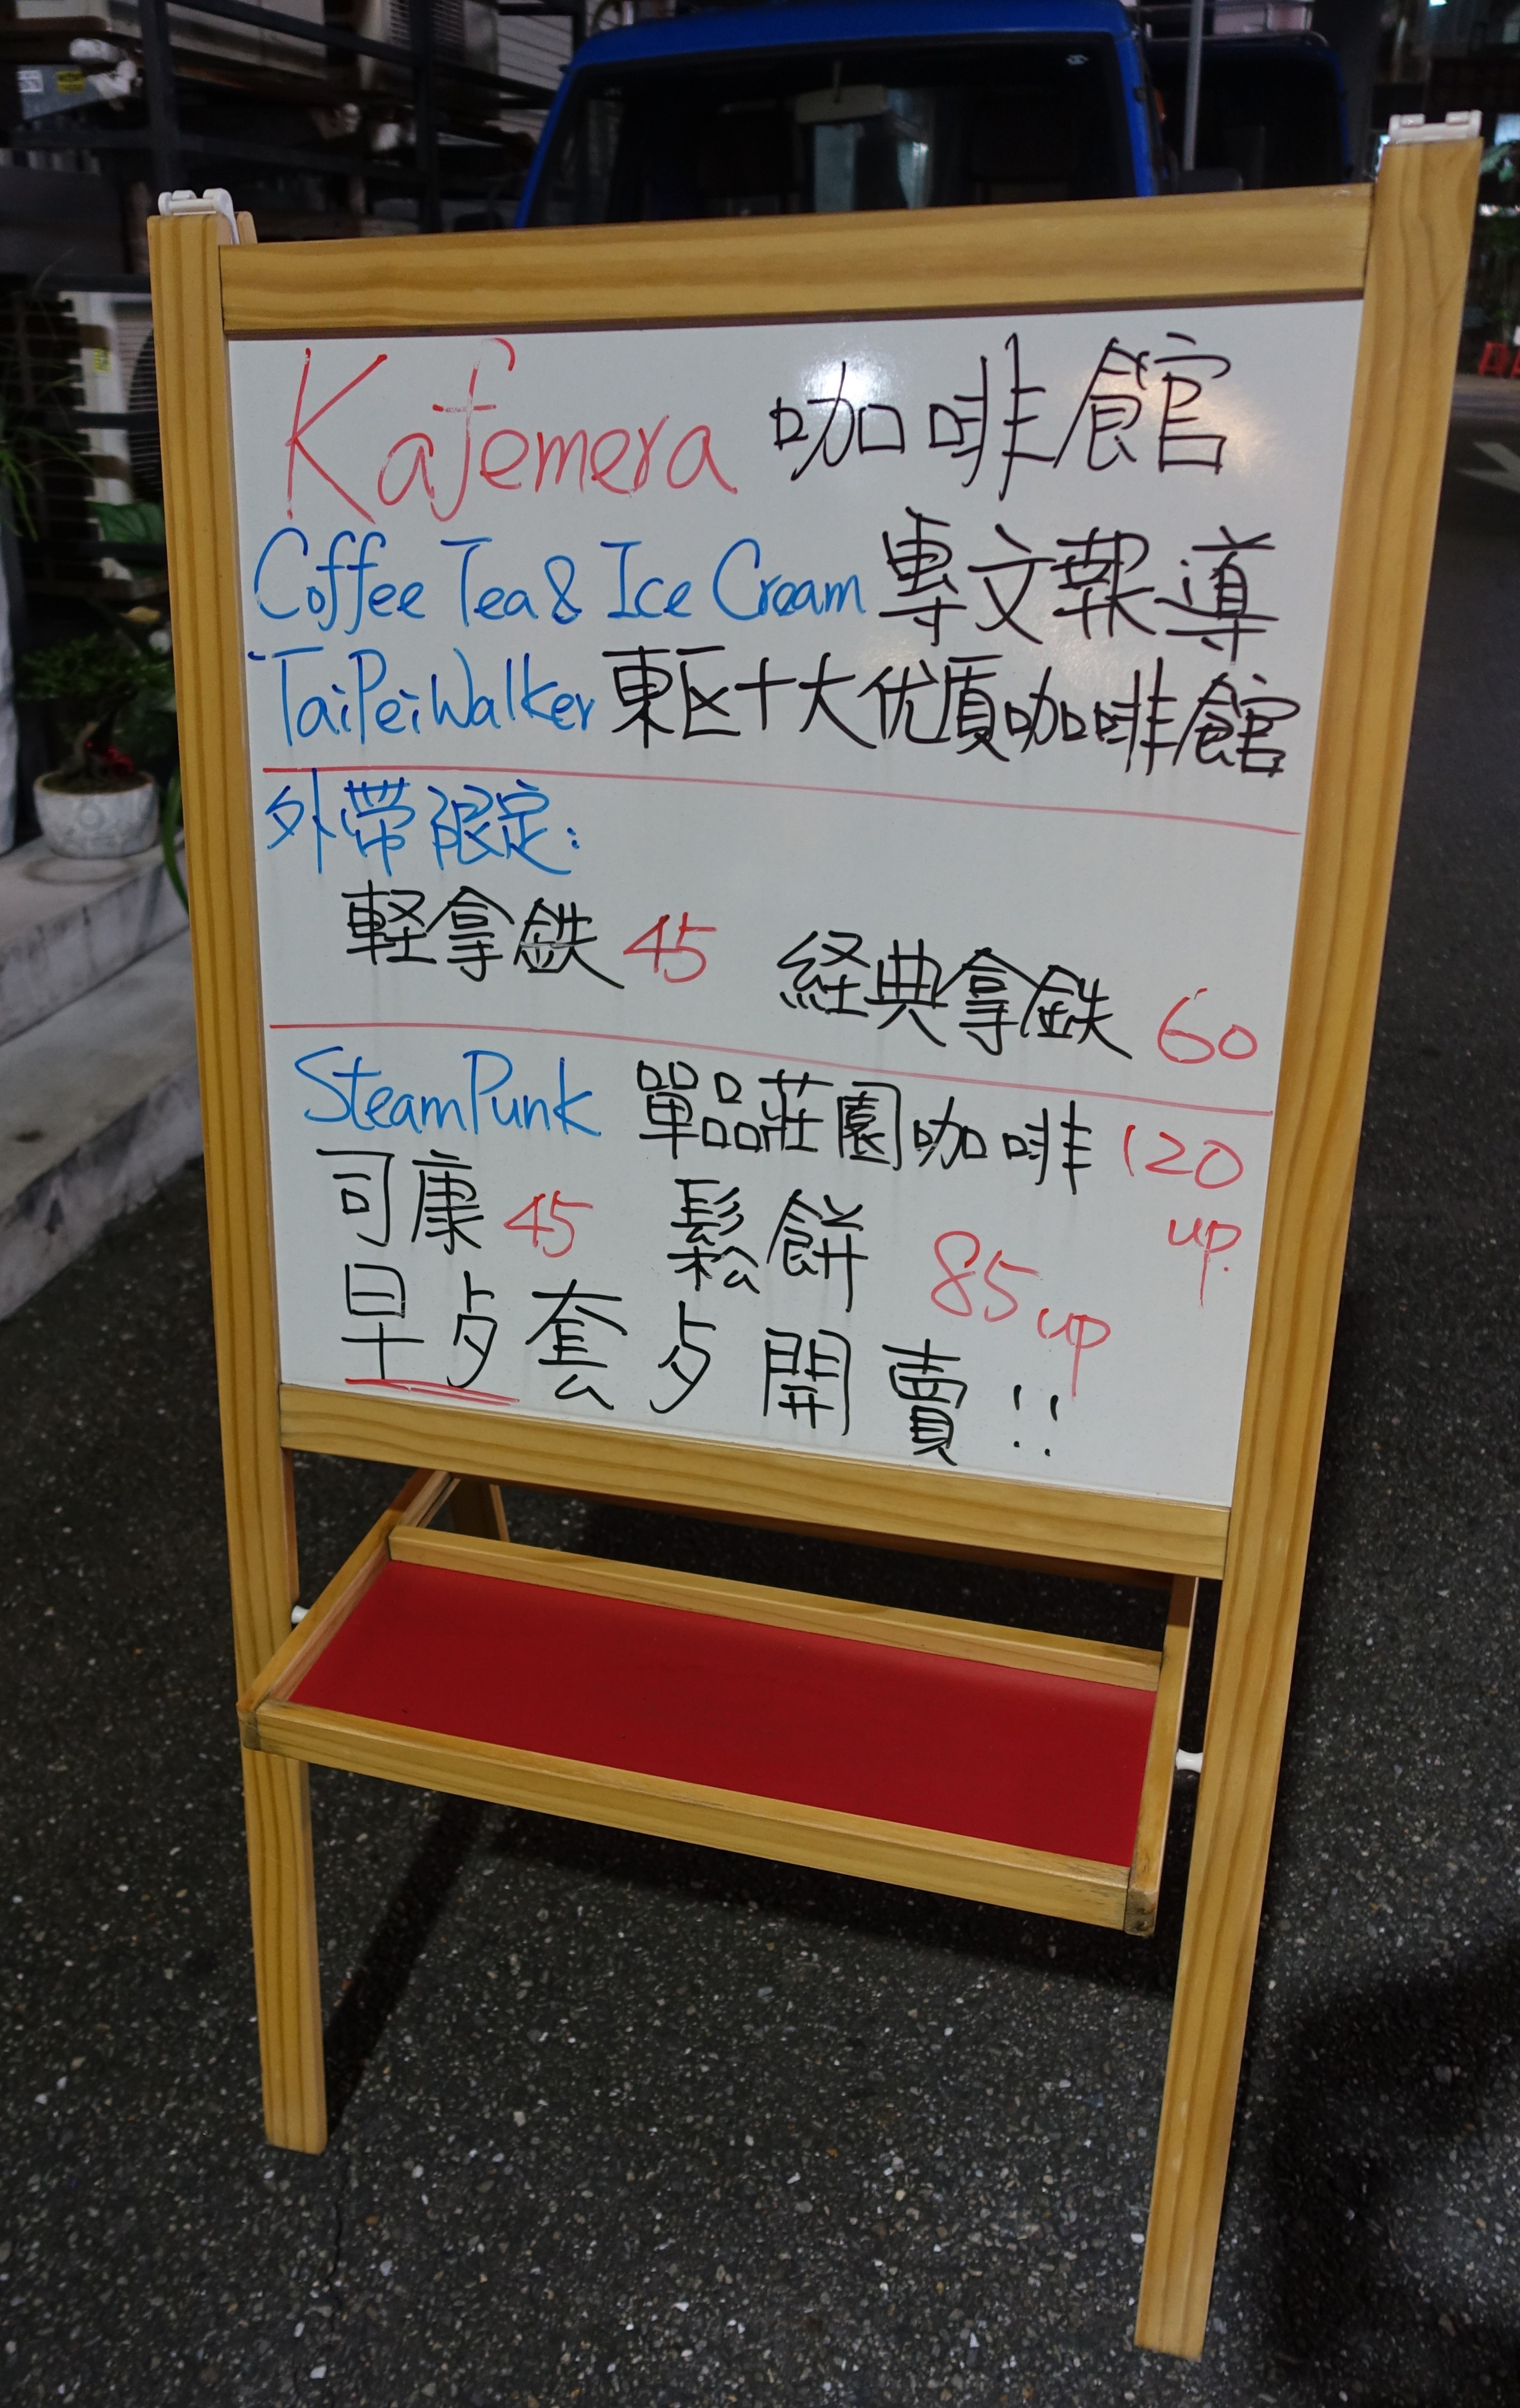 Kafemera 咖啡館
Coffee Tea & Ice Cream 專文報導
TaiPeiWalker 東区十大优質咖啡館
外帶限定:
軽拿鉄 45 経典拿鉄 60
SteamPunk 單品莊園咖啡 120 up
司康 45 鬆餅 85 up
早歺套歺開賣!!